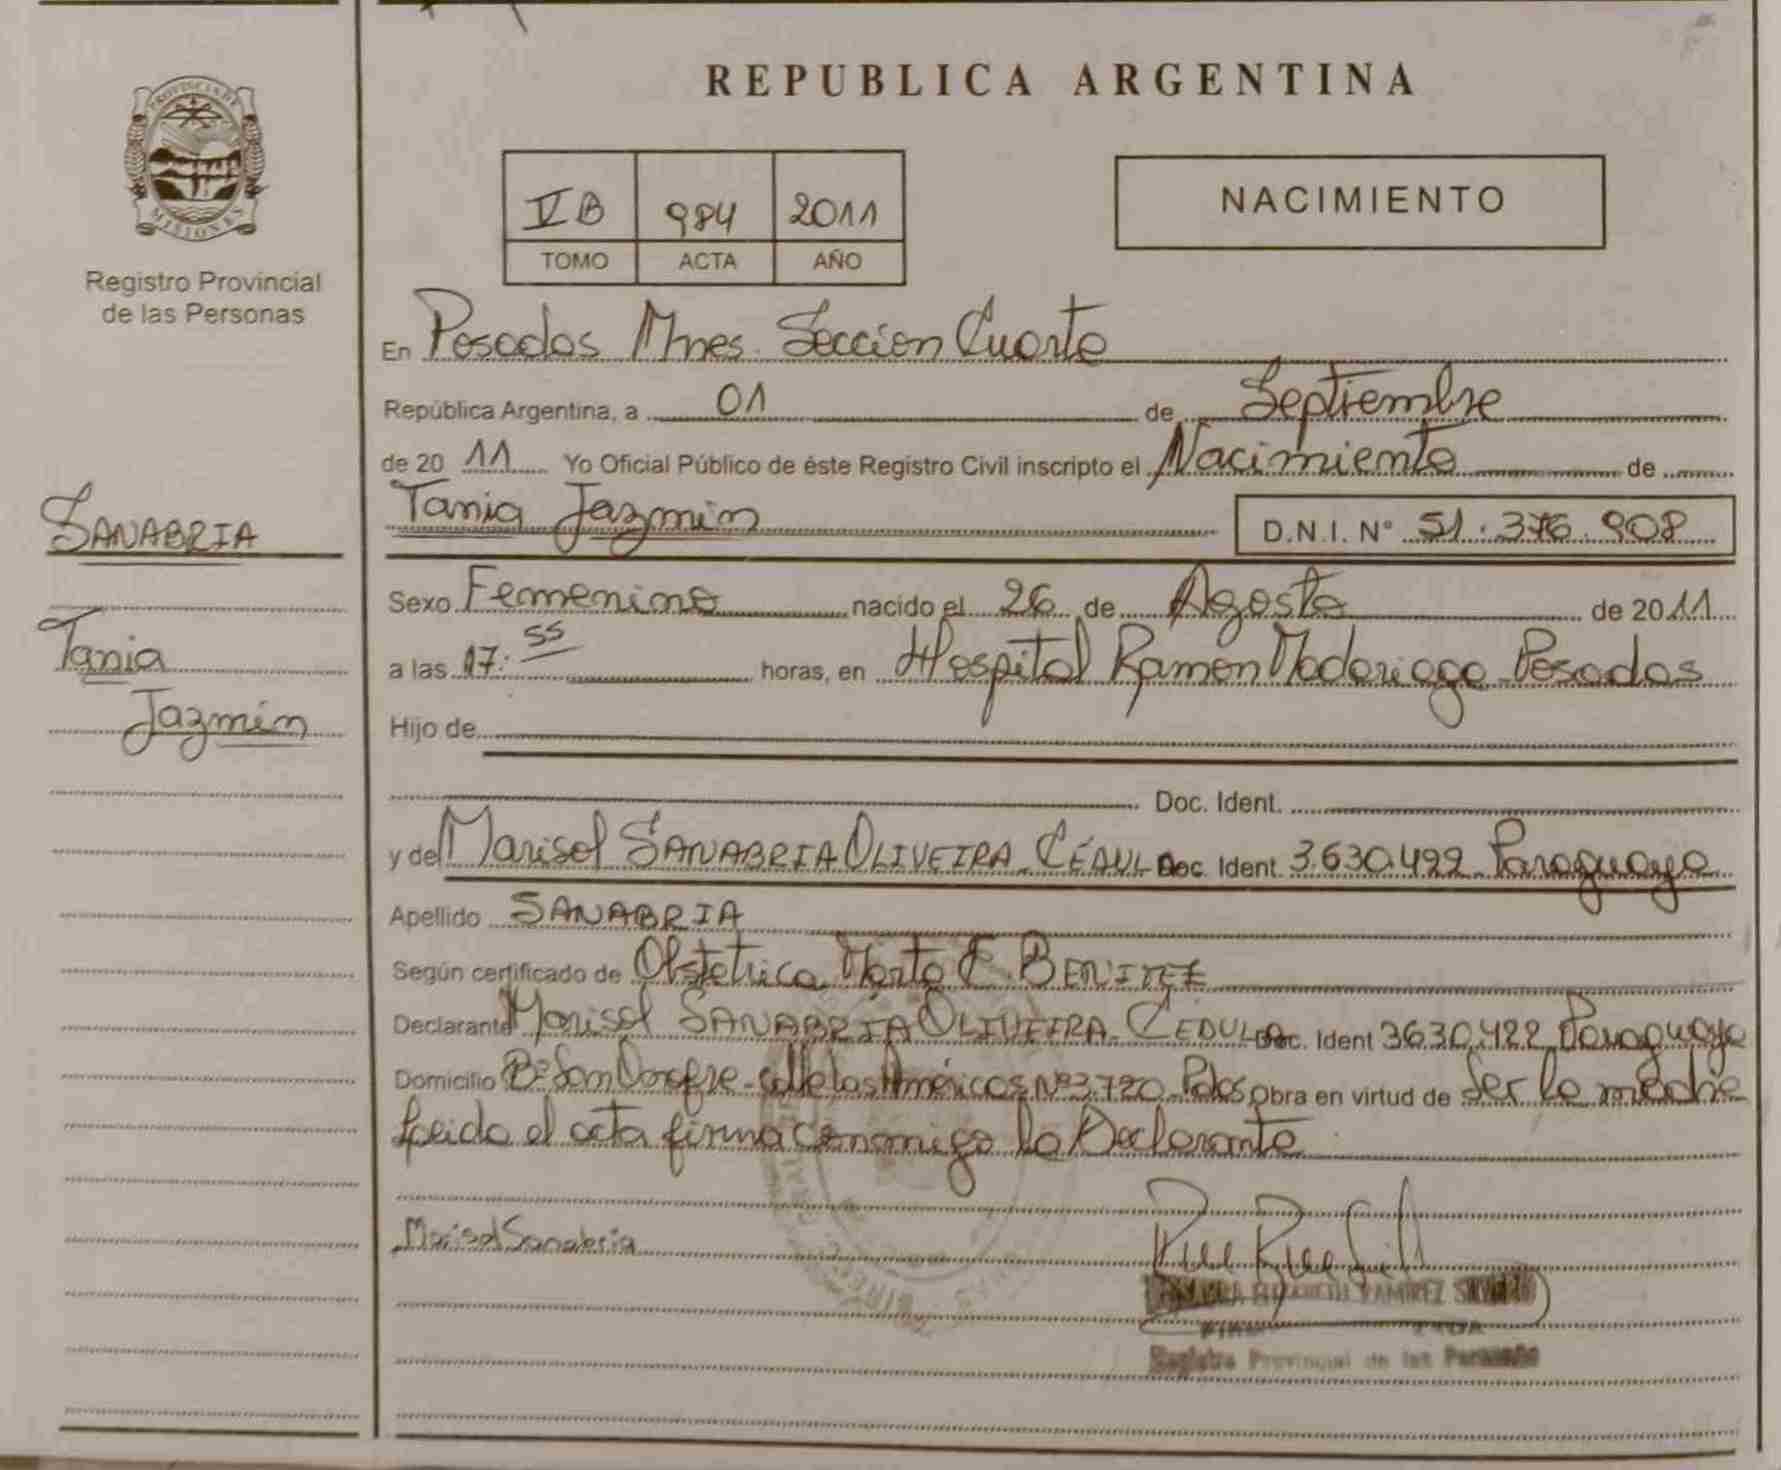 REPUBLICA ARGENTINA
PROVINCIA DE
MISIONES
Registro Provincial
de las Personas
NACIMIENTO
V B 984 2011
TOMO ACTA AÑO
En Posadas Mnes. Sección Cuarta
República Argentina, a 01 de Septiembre
de 20 11 Yo Oficial Público de éste Registro Civil inscripto el Nacimiento de
Tania Jazmin D.N.I. N° 51.376.908
SANABRIA
Tania
Jazmin
Sexo Femenino nacido el 26 de Agosto de 2011
a las 17:55 horas, en Hospital Ramon Madariaga Posadas
Hijo de
Doc. Ident.
y de Marisol SANABRIA OLIVEIRA CÉDULA Doc. Ident. 3.630.499 Paraguaya
Apellido SANABRIA
Según certificado de Obstetrica Marta E. BENITEZ
Declarante Marisol SANABRIA OLIVEIRA CEDULA Doc. Ident 3630.499 Paraguaya
Domicilio B° San Onofre - calle las Américas N° 3.720 - Pdas Obra en virtud de Ser la madre
Leida el acta firma conmigo la Declarante
Marisol Sanabria
RAMIREZ
Registro Provincial de las Personas